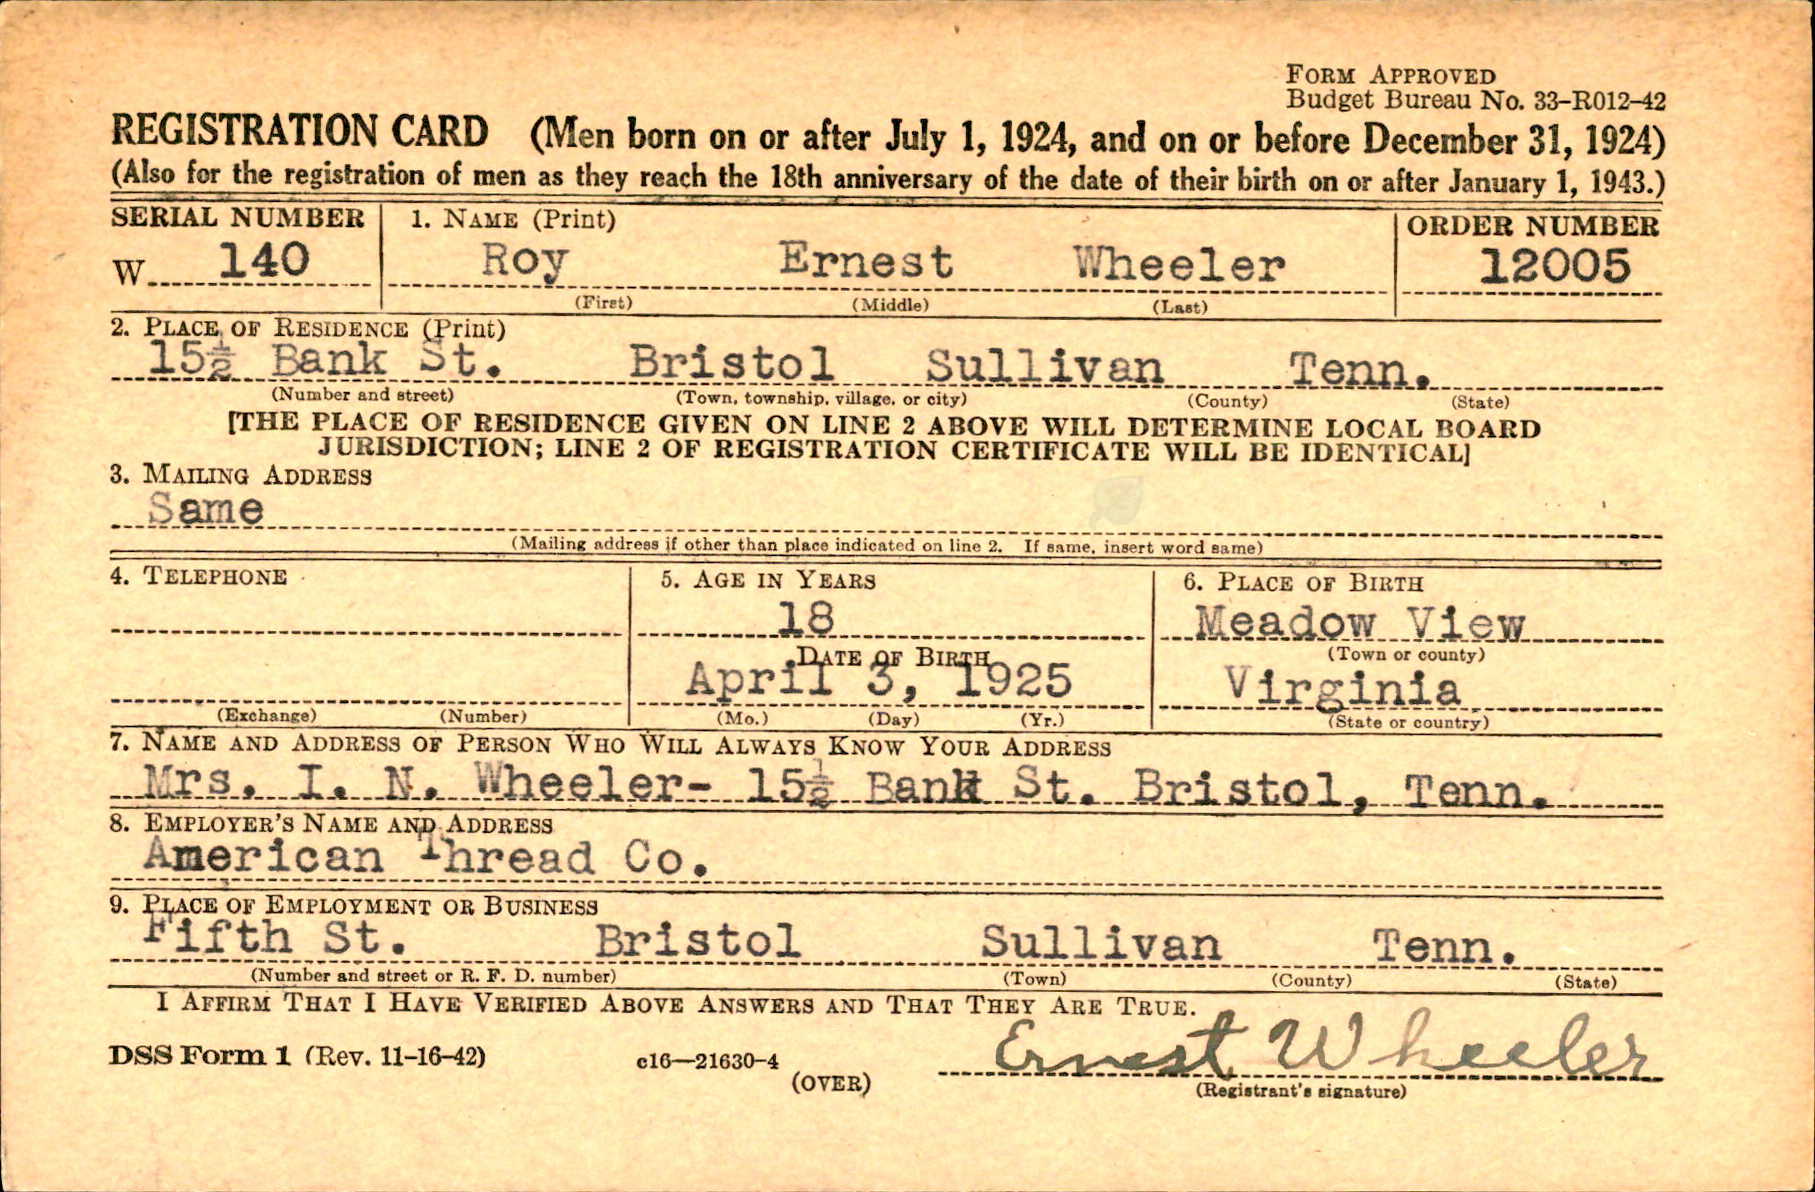 FORM APPROVED
Budget Bureau No. 33-R012-42
REGISTRATION CARD (Men born on or after July 1, 1924, and on or before December 31, 1924)
(Also for the registration of men as they reach the 18th anniversary of the date of their birth on or after January 1, 1943.)
SERIAL NUMBER 1. NAME (Print) ORDER NUMBER
W 140 Roy Ernest Wheeler 12005
(First) (Middle) (Last)
2. PLACE OF RESIDENCE (Print)
15½ Bank St. Bristol Sullivan Tenn.
(Number and street) (Town, township, village, or city) (County) (State)
[THE PLACE OF RESIDENCE GIVEN ON LINE 2 ABOVE WILL DETERMINE LOCAL BOARD
JURISDICTION; LINE 2 OF REGISTRATION CERTIFICATE WILL BE IDENTICAL]
3. MAILING ADDRESS
Same
(Mailing address if other than place indicated on line 2. If same, insert word same)
4. TELEPHONE 5. AGE IN YEARS 6. PLACE OF BIRTH
18 Meadow View
DATE OF BIRTH (Town or county)
April 3, 1925 Virginia
(Exchange) (Number) (Mo.) (Day) (Yr.) (State or country)
7. NAME AND ADDRESS OF PERSON WHO WILL ALWAYS KNOW YOUR ADDRESS
Mrs. I. N. Wheeler- 15½ Bank St. Bristol, Tenn.
8. EMPLOYER'S NAME AND ADDRESS
American Thread Co.
9. PLACE OF EMPLOYMENT OR BUSINESS
Fifth St. Bristol Sullivan Tenn.
(Number and street or R. F. D. number) (Town) (County) (State)
I AFFIRM THAT I HAVE VERIFIED ABOVE ANSWERS AND THAT THEY ARE TRUE.
DSS Form 1 (Rev. 11-16-42) c16—21630-4 Ernest Wheeler
(OVER) (Registrant's signature)